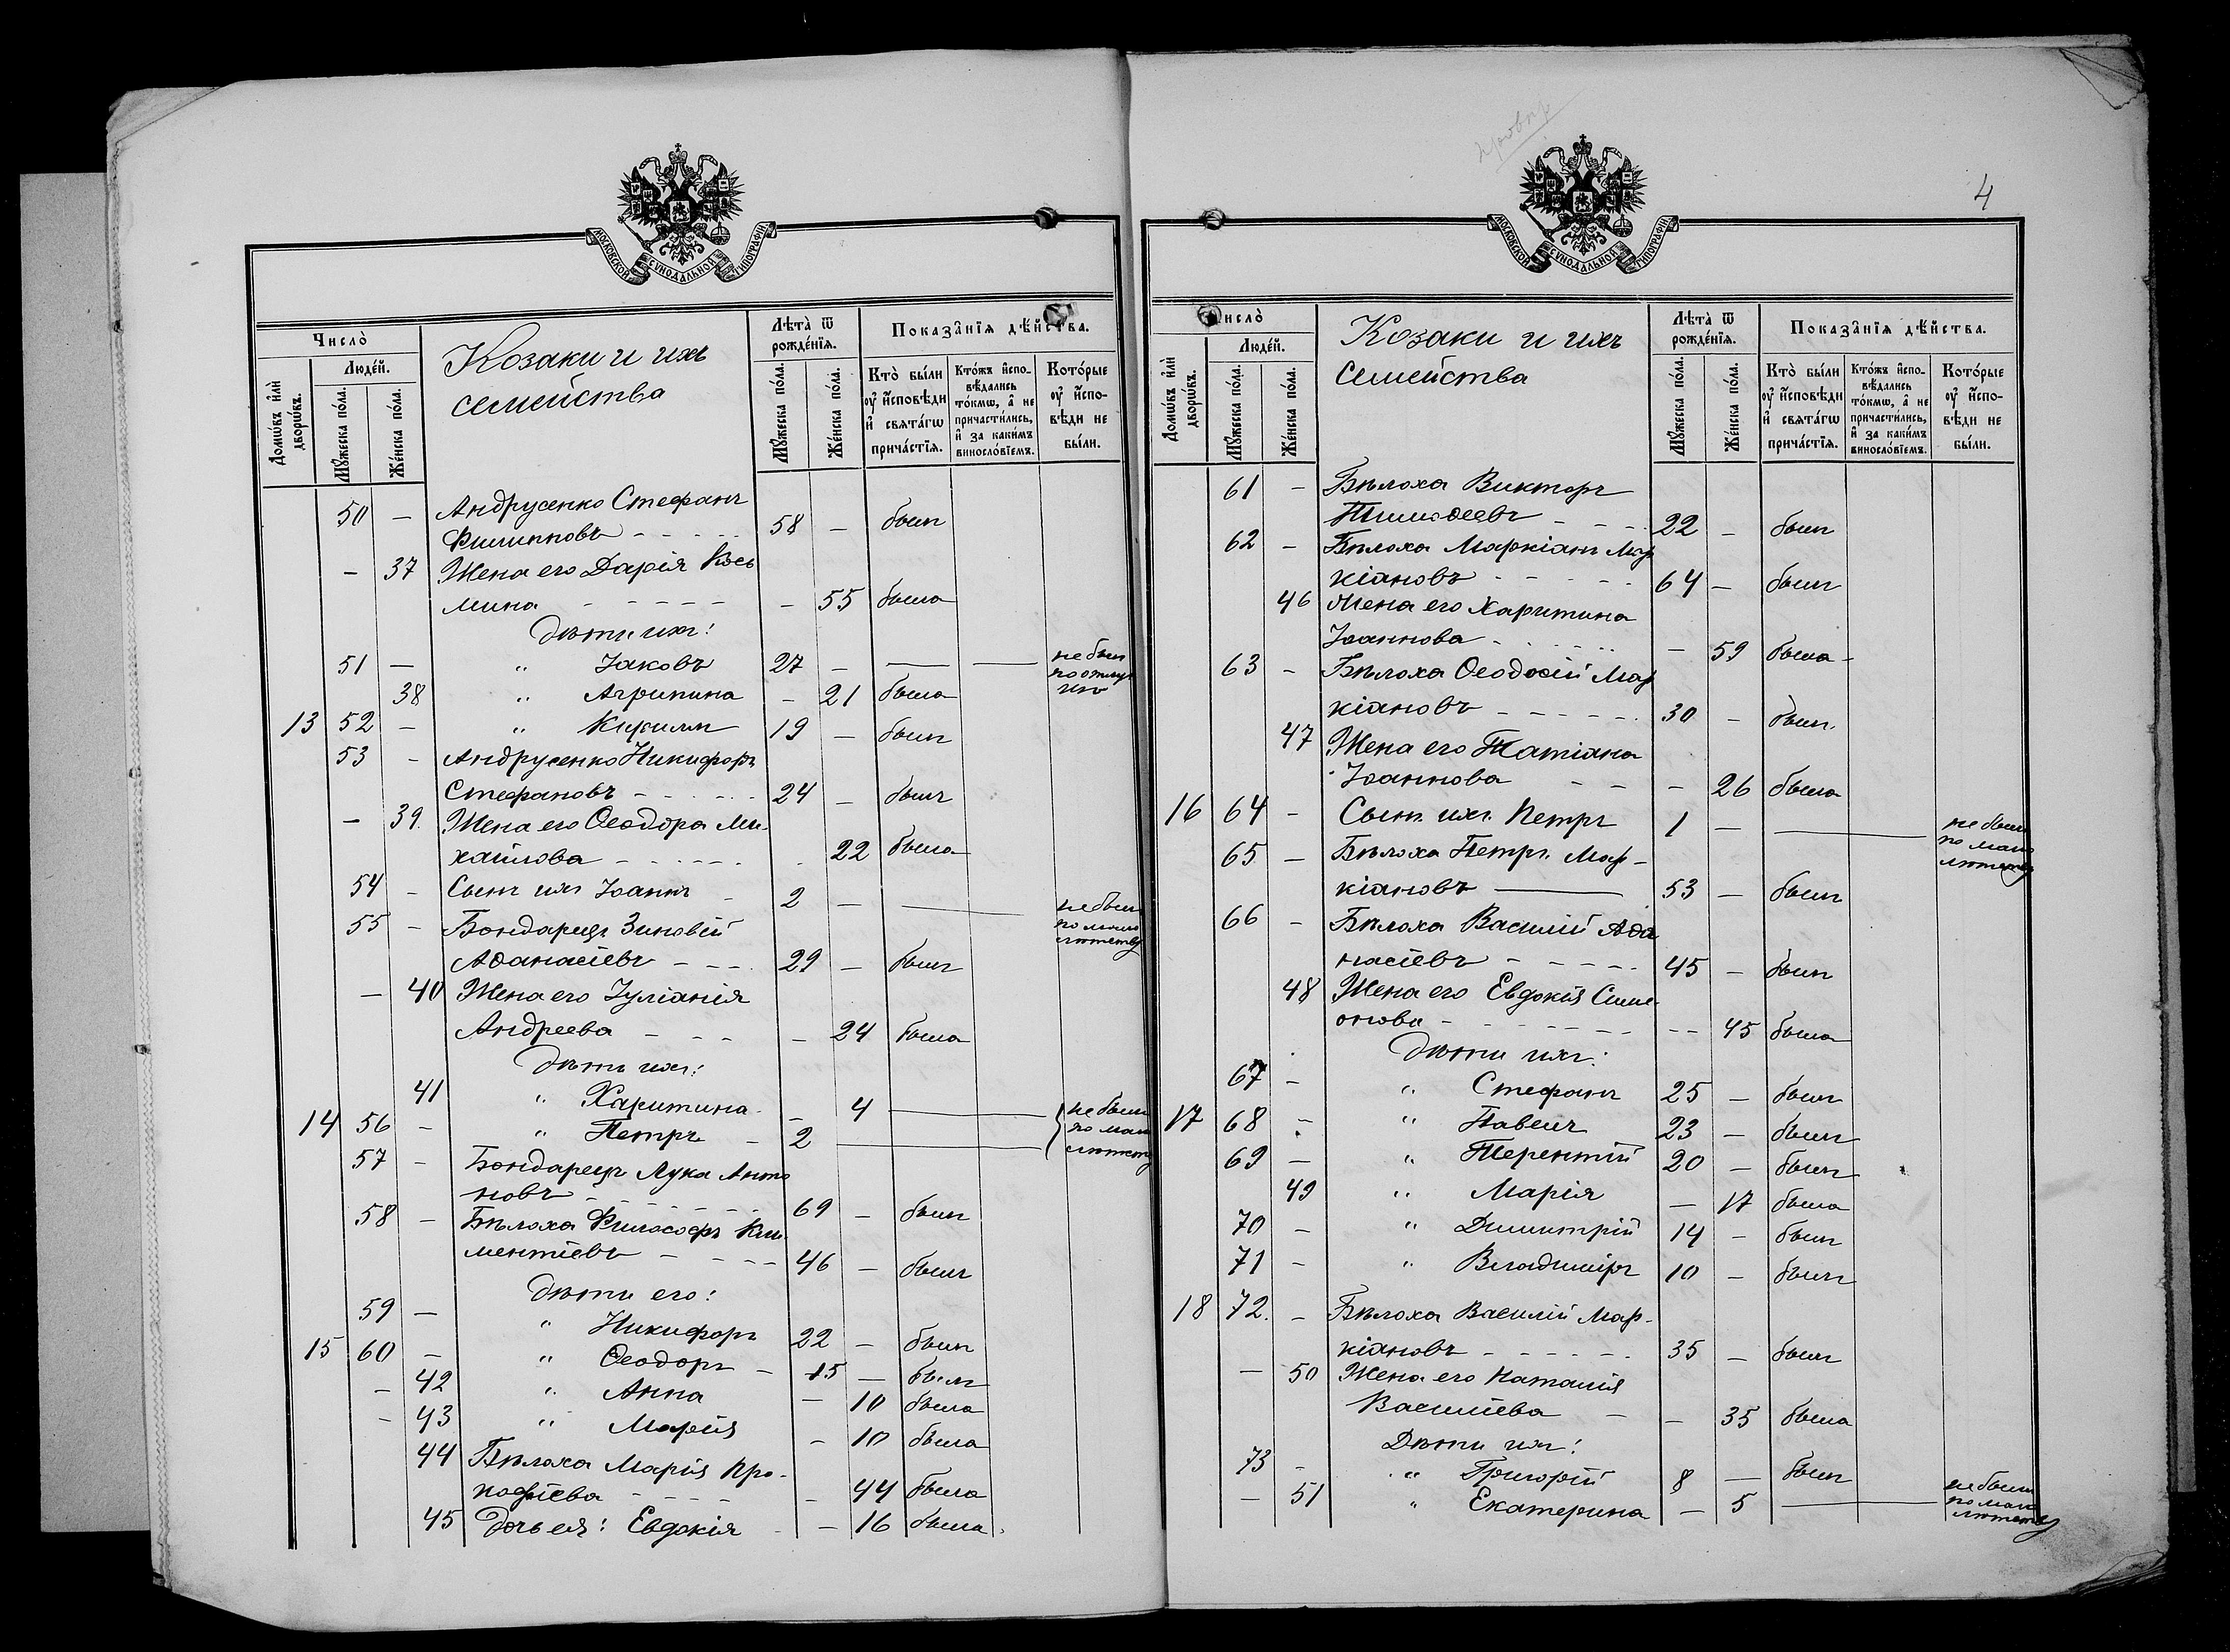 МОСКОВСКОЙ СУНОДАЛЬНОЙ ТИПОГРАФІИ
Число̀
Людéй.
Домѡ́въ и҆лѝ дворѡ́въ.
Мꙋ́жеска по́ла.
Же́нска по́ла.
Козаки и ихъ
семейства
Лѣ́та ѿ рожде́нїѧ.
Мꙋ́жеска по́ла.
Же́нска по́ла.
Показа̂нїѧ дѣ́йства.
Кто̀ бы́ли оу҆ и҆сповѣ́ди и҆ свѧта́гѡ прича́стїѧ.
Кто́жъ и҆сповѣ́дались то́кмѡ, а҆ не причасти́лись, и҆ за каки́мъ винословїемъ.
Кото́рые оу҆ и҆сповѣ́ди не бы́ли.
50 — Андрусенко Стефанъ
Филипповъ - - - - 58 — былъ
— 37 Жена его Дарія Кось
мина - - - - - — 55 была
Дѣти ихъ:
51 — " Іаковъ 27 — — — не былъ
по отлуч
кѣ
38 " Агрипина — 21 была
13 52 — " Кириллъ 19 — былъ
53 - Андрусенко Никифоръ
Стефановъ - - - - 24 — былъ
— 39. Жена его Ѳеодора Ми-
хайлова - - - - - 22 была
54 - Сынъ ихъ Іоаннъ - 2 — — не былъ
по мало
лѣтству
55 - Бондарецъ Зиновій
Аѳанасіевъ - - - 29 — былъ
— 40 Жена его Іуліанія
Андреева - - - — 24 была
Дѣти ихъ:
41 " Харитина - — 4 — не были
14 56 - " Петръ - 2 — по мало
лѣтству
57 - Бондарецъ Лука Анто
новъ - - - - 69 — былъ
58 - Бѣлоха Философъ Кли
ментіевъ - - - - 46 — былъ
Дѣти его:
59 — " Никифоръ 22 — былъ
15 60 — " Ѳеодоръ - 15 — былъ
- 42 " Анна — 10 была
- 43 " Марія - 10 была
44 Бѣлоха Марія Про-
кофіева - - - - - 44 была
45 Дочь ея: Евдокія - — 16 была.
4
МОСКОВСКОЙ СУНОДАЛЬНОЙ ТИПОГРАФІИ
Число̀
Людéй.
Домѡ́въ и҆лѝ дворѡ́въ.
Мꙋ́жеска по́ла.
Же́нска по́ла.
Козаки и ихъ
семейства
Лѣ́та ѿ рожде́нїѧ.
Мꙋ́жеска по́ла.
Же́нска по́ла.
Показа̂нїѧ дѣ́йства.
Кто̀ бы́ли оу҆ и҆сповѣ́ди и҆ свѧта́гѡ прича́стїѧ.
Кто́жъ и҆сповѣ́дались то́кмѡ, а҆ не причасти́лись, и҆ за каки́мъ винословїемъ.
Кото́рые оу҆ и҆сповѣ́ди не бы́ли.
61 - Бѣлоха Викторъ
Тимоѳеевъ - - - 22 — былъ
62 - Бѣлоха Маркіанъ Мар
кіановъ - - - - - 64 — былъ
46 Жена его Харитина
Іоаннова - - - - — 59 была -
63 - Бѣлоха Ѳеодосій Мар
кіановъ - - - - - 30 - былъ.
47 Жена его Татіана
Іоаннова - - - 26 была
16 64 - Сынъ ихъ Петръ 1 — — не былъ
по мало
лѣтству
65 — Бѣлоха Петръ Мар-
кіановъ — 53 — былъ
66 - Бѣлоха Василій Аѳа
насіевъ - - - - - 45 — былъ
48 Жена его Евдокія Симе-
онова - - - - - - -- 45 была
Дѣти ихъ:
67 - " Стефанъ 25 — былъ
17 68 - " Павелъ 23 — былъ
69 — " Терентій 20 — былъ
49 " Марія — 17 была
70 - " Димитрій 14 - былъ
71 - " Владиміръ 10 - былъ
18 72. - Бѣлоха Василій Мар-
кіановъ - - - - - 35 — былъ
— 50 Жена его Наталія
Василіева - — 35 была
Дѣти ихъ:
73 - " Григорій 8 — былъ
— 51 " Екатерина — 5 — не была
по мало
лѣтству